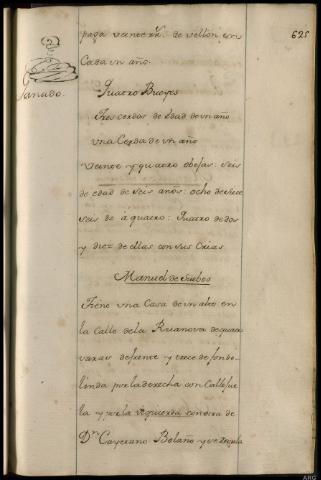 625
paga veinte rr. de vellón, en
Cada un año.
Ganado.
Quatro Bueyes
Tres cerdos de edad de un año
una Cerda de un año
veinte y quatro obejas: seis
de edad de seis años: ocho de siete
seis de a quatro: Quatro de dos
y diez de ellas con sus Crias
Manuel de
Tiene una Casa de un alto en
la Calle de la Ruanova de
varas de frente y trece de fondo
linda por la derecha con
lla y por la izquierda con otra de
Dn. Cayetano Bolaño y se
ARG